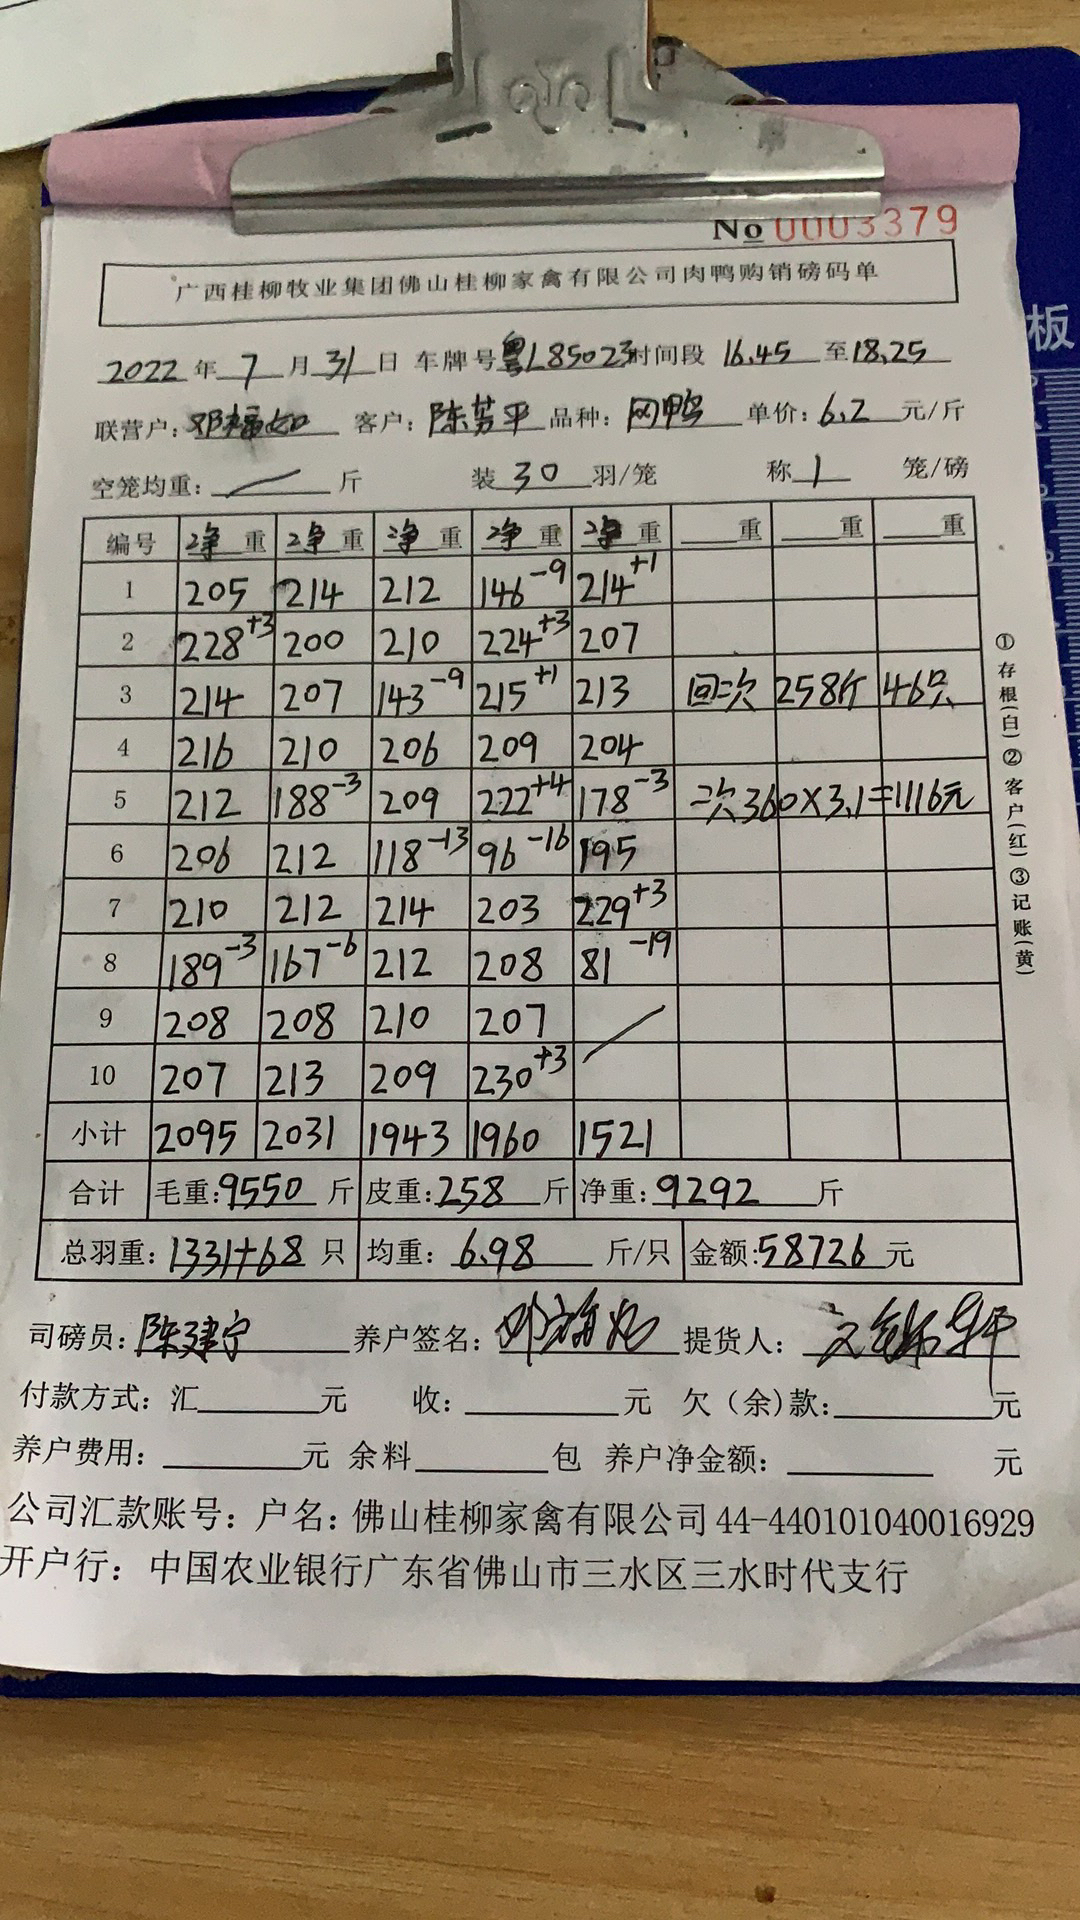 板
No 0003379
广西桂柳牧业集团佛山桂柳家禽有限公司肉鸭购销磅码单
2022 年 7 月 31 日 车牌号 粤L85023 时间段 16.45 至 18.25
联营户: 邓福如 客户: 陈芳平 品种: 网鸭 单价: 6.2 元/斤
空笼均重: / 斤 装 30 羽/笼 称 1 笼/磅
编号 净 重 净 重 净 重 净 重 净 重 重 重 重
1 205 214 212 146-9 214+1
2 228+3 200 210 224+3 207
3 214 207 143-9 215+1 213 回二次 258斤 46只
4 216 210 206 209 204
5 212 188-3 209 222+4 178-3 二次360×3.1=1116元
6 206 212 118-13 96-16 195
7 210 212 214 203 229+3
8 189-3 167-6 212 208 81-19
9 208 208 210 207
10 207 213 209 230+3
小计 2095 2031 1943 1960 1521
合计 毛重:9550 斤 皮重:258 斤 净重:9292 斤
总羽重: 1331+68 只 均重: 6.98 斤/只 金额:58726 元
司磅员: 陈建宁 养户签名: 提货人:
付款方式: 汇 元 收: 元 欠(余)款: 元
养户费用: 元 余料 包 养户净金额: 元
公司汇款账号: 户名: 佛山桂柳家禽有限公司 44-440101040016929
开户行: 中国农业银行广东省佛山市三水区三水时代支行
①存根(白)②客户(红)③记账(黄)